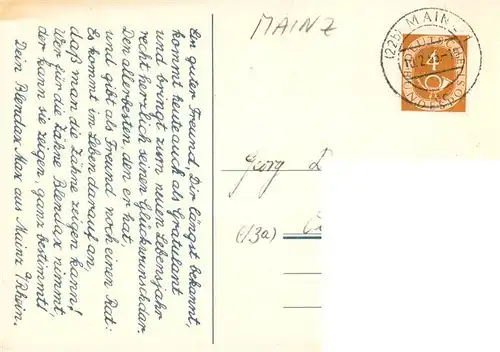 Ein guter Freund, Dir längst bekannt,
kommt heute auch als Gratulant
und bringt zum neuen Lebensjahr
recht herzlich seinen Glückwunsch dar.
Den allerbesten, den er hat,
und gibt als Freund noch einen Rat:
Es kommt im Leben darauf an,
daß man die Zähne zeigen kann!
Wer für die Zähne Blendax nimmt,
der kann sie zeigen, ganz bestimmt!
Dein Blendax Max aus Mainz a/Rhein.
MAINZ
(22b) MAINZ
DEUTSCHE
4
BUNDESPOST
Georg
(13a)